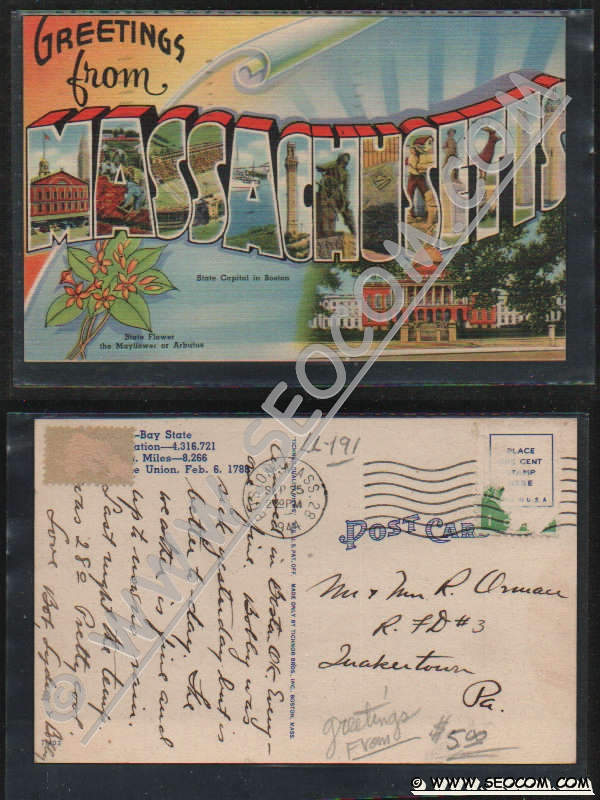 GREETINGS
from
MASSACHUSETTS
State Capital in Boston
State Flower
the Mayflower or Arbutus
© WWW.SEOCOM.COM
-Bay State
ation—4,316,721
. Miles—8,266
e Union, Feb. 6, 1788
L-191
BOSTON, MASS. 28
SEP 5
PM
1944
PLACE
CENT
STAMP
HERE
U.S.A
POST CAR
in Boston OK. Every-
fine. Bobby was
sick yesterday but is
better to-day. The
weather is fine and
up to near
Last night the temp.
was 28° Pretty cool.
Love Bob,
MADE ONLY BY TICHNOR BROS., INC., BOSTON, MASS.
Mr & Mrs R. Orman
R. F D # 3
Quakertown
Pa.
greetings
From
$5.00
© WWW.SEOCOM.COM